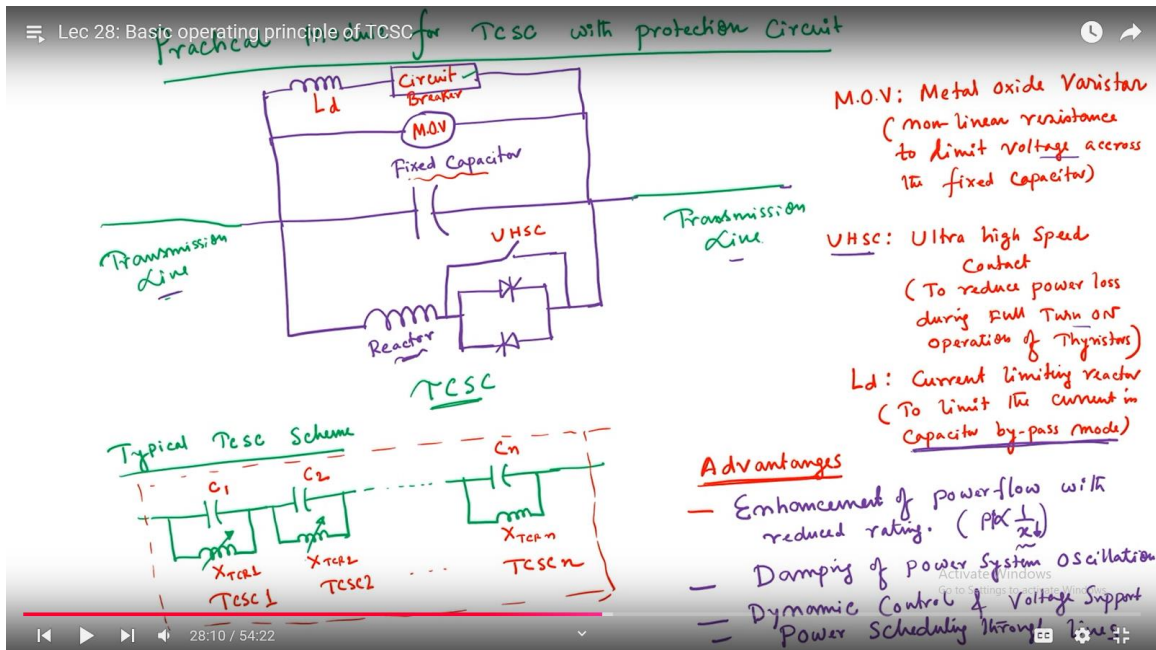 Lec 28: Basic operating principle of TCSC
Practical Module for TCSC with protection Circuit
Ld
Circuit
Breaker
M.O.V
Fixed Capacitor
Transmission
Line
Transmission
Line
UHSC
Reactor
TCSC
M.O.V: Metal Oxide Varistar
(non-linear resistance
to limit voltage accross
the fixed capacitor)
UHSC: Ultra high Speed
Contact
(To reduce power loss
during Full Turn ON
operation of Thyristors)
Ld: Current limiting reactor
(To limit the current in
Capacitor by-pass mode)
Typical TCSC Scheme
C1
C2
Cn
XTCR1
XTCR2
XTCRn
TCSC1
TCSC2
...
TCSCn
Advantanges
— Enhancement of power flow with
reduced rating. (P↑∝ 1/x↓)
— Damping of power System oscillation
— Dynamic Control & Voltage Support
— Power Scheduling through lines
Activate Windows
Go to Settings to activate Windows.
28:10 / 54:22
CC